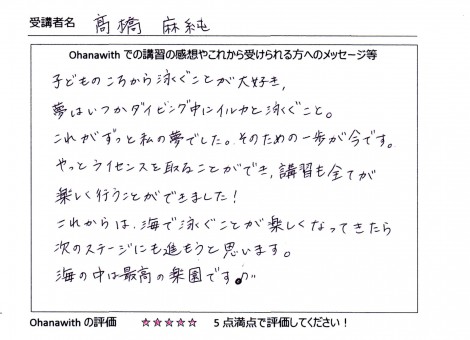 受講者名 髙橋 麻純
Ohanawith での講習の感想やこれから受けられる方へのメッセージ等
子どものころから泳ぐことが大好き,
夢はいつかダイビング中にイルカと泳ぐこと。
これがずっと私の夢でした。そのための一歩が今です。
やっとライセンスを取ることができ,講習も全てが
楽しく行うことができました!
これからは、海で泳ぐことが楽しくなってきたら
次のステージにも進もうと思います。
海の中は最高の楽園です♪
Ohanawith の評価 ☆☆☆☆☆ 5点満点で評価してください!